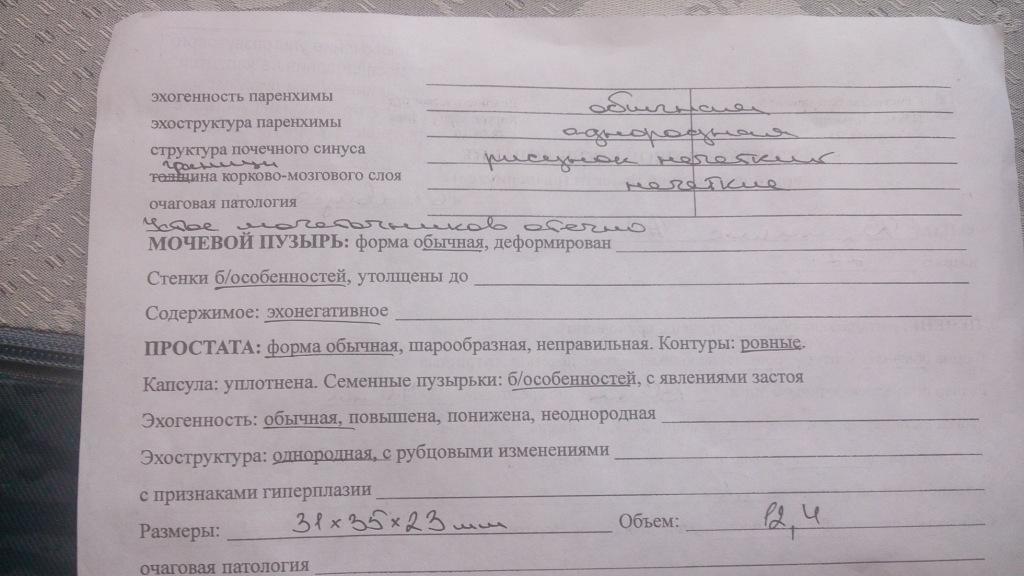 эхогенность паренхимы обычная
эхоструктура паренхимы однородная
структура почечного синуса рисунок нечеткий
границы
толщина корково-мозгового слоя нечеткие
очаговая патология
Устье мочеточников отечно
МОЧЕВОЙ ПУЗЫРЬ: форма обычная, деформирован
Стенки б/особенностей, утолщены до
Содержимое: эхонегативное
ПРОСТАТА: форма обычная, шарообразная, неправильная. Контуры: ровные.
Капсула: уплотнена. Семенные пузырьки: б/особенностей, с явлениями застоя
Эхогенность: обычная, повышена, понижена, неоднородная
Эхоструктура: однородная, с рубцовыми изменениями
с признаками гиперплазии
Размеры: 31×35×23 мм Объем: 12,4
очаговая патология